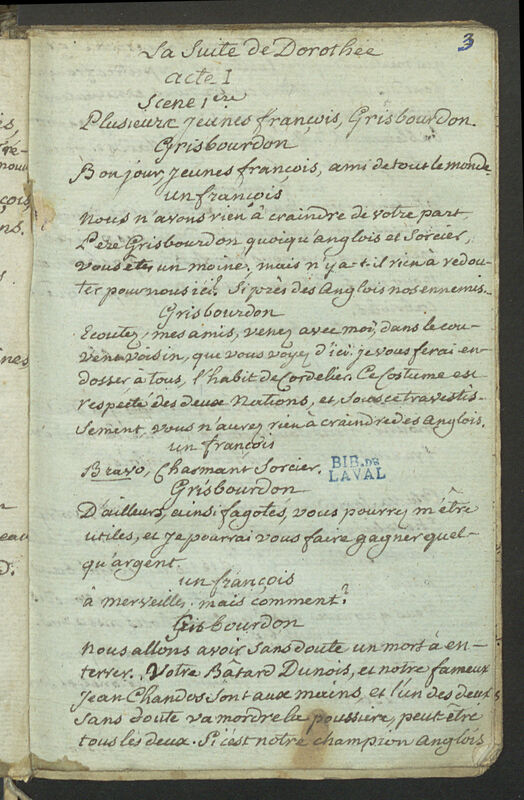 3
La Suite de Dorothée
acte I
Scene 1ere
Plusieurx jeunes françois, Grisbourdon.
Grisbourdon
Bon jour, jeunes françois, ami de tout le monde
un françois
nous n'avons rien à craindre de votre part,
Pere Grisbourdon quoiqu'anglois et Sorcier,
vous êtes un moine. mais n'y a-t-il rien à redou-
ter pour nous ici. Si près des Anglois nos ennemis.
Grisbourdon
Ecoutez, mes amis, venez avec moi, dans le cou-
vent voisin, que vous voyez d'ici. je vous ferai en-
dosser à tous, l'habit de Cordelier. Ce Costume est
respecté des deux Nations, et sous ce travestis-
sement, vous n'aurez rien à craindre des Anglois.
un françois
Bravo, Charmant Sorcier.
BIB. DE
LAVAL
Grisbourdon
D'ailleurs, ainsi fagotés, vous pourrez m'être
utiles, et je pourrai vous faire gagner quel-
qu'argent.
un françois
à merveilles, mais comment?
Grisbourdon
nous allons avoir sans doute un mort à en-
terrer. Votre Bâtard Dunois, et notre fameux
Jean Chandos sont aux mains, et l'un des deux
sans doute va mordre la poussiere, peut être
tous les deux. Si c'est notre champion Anglois